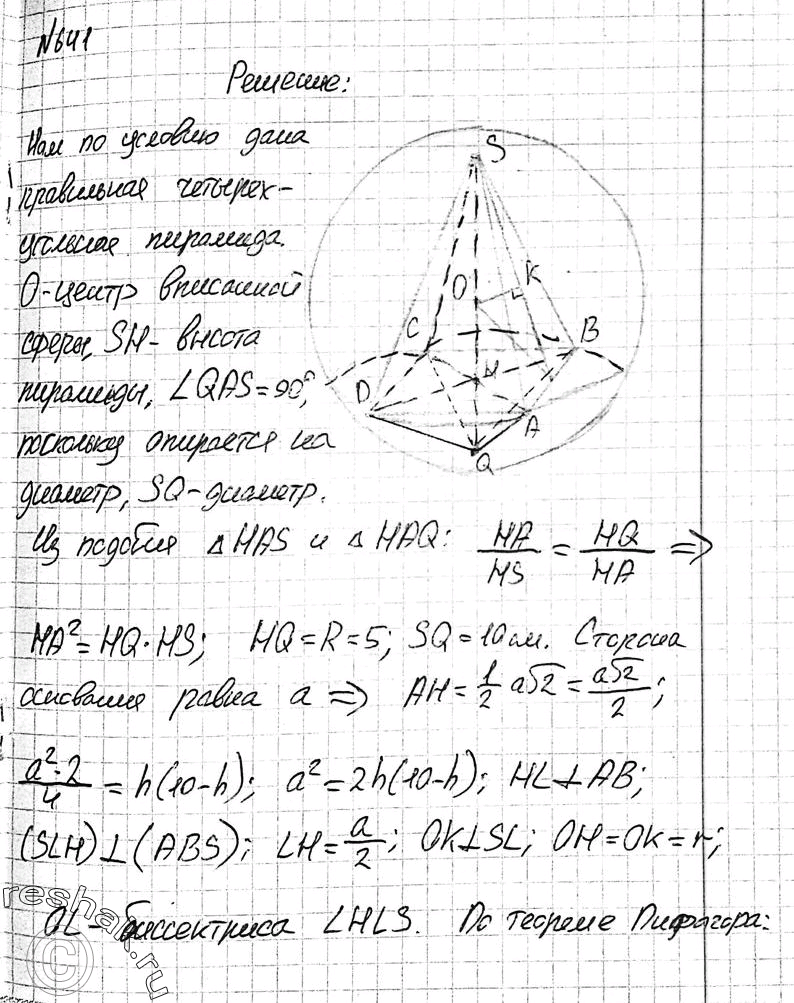 N641
Решение:
Нам по условию дана
правильная четырех-
угольная пирамида.
O-центр вписанной
сферы, SH- высота
пирамиды, ∠QAS=90°,
поскольку опирается на
диаметр, SQ-диаметр.
S
O K
C B
H
D A
Q
Из подобия △HAS и △HAQ: HA/HS = HQ/HA ⇒
HA²=HQ·HS; HQ=R=5; SQ=10см. Сторона
основания равна a ⇒ AH=1/2 a√2 = a√2/2;
a²·2/4 = h(10-h); a²=2h(10-h); HL⊥AB;
(SLH)⊥(ABS); LH=a/2; OK⊥SL; OH=OK=r;
OL- биссектриса ∠HLS. По теореме Пифагора:
reshak.ru
©